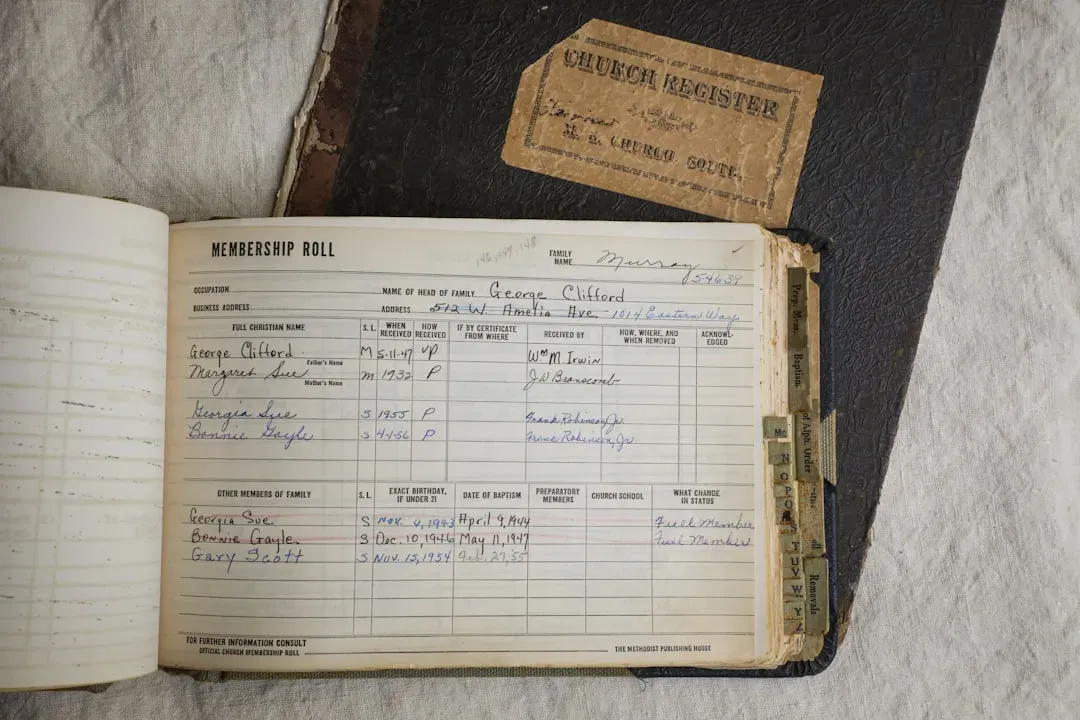 CHURCH REGISTER
M. E. CHURCH, SOUTH.
MEMBERSHIP ROLL
146, 147, 148
FAMILY NAME Murray
5-4637
OCCUPATION NAME OF HEAD OF FAMILY George Clifford
BUSINESS ADDRESS ADDRESS 512 W. Amelia Ave - 1014 Eastern Way
FULL CHRISTIAN NAME S. L. WHEN RECEIVED HOW RECEIVED IF BY CERTIFICATE FROM WHERE RECEIVED BY HOW, WHERE, AND WHEN REMOVED ACKNOWL-EDGED
George Clifford M 5-11-47 VP Wm M Irwin
Father's Name
Margaret Sue M 1932 P J.W Branscomb
Mother's Name
Georgia Sue S 1955 P Frank Robinson, Jr.
Bonnie Gayle S 4-1-56 P Frank Robinson, Jr.
OTHER MEMBERS OF FAMILY S. L. EXACT BIRTHDAY, IF UNDER 21 DATE OF BAPTISM PREPARATORY MEMBERS CHURCH SCHOOL WHAT CHANGE IN STATUS
Georgia Sue S Nov. 4, 1943 April 9, 1944 Full Member
Bonnie Gayle S Dec. 10, 1946 May 11, 1947 Full Member
Gary Scott S Nov. 15, 1954 Feb. 27, '55
FOR FURTHER INFORMATION CONSULT
OFFICIAL CHURCH MEMBERSHIP ROLL THE METHODIST PUBLISHING HOUSE
Prep. Mem.
Baptism
of Alph. Order
Removals
Mc
N
O
P
S
T
U
V
W
Y
Z